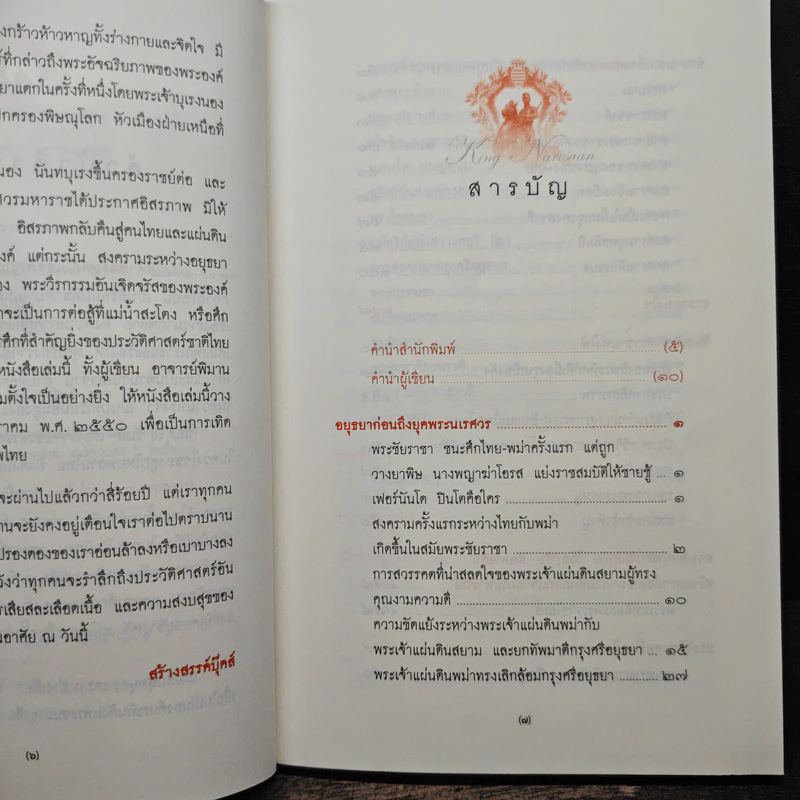 งกร้าวห้าวหาญทั้งร่างกายและจิตใจ มี
ร์ที่กล่าวถึงพระอัจฉริยภาพของพระองค์
ยาแตกในครั้งที่หนึ่งโดยพระเจ้าบุเรงนอง
ปกครองพิษณุโลก หัวเมืองฝ่ายเหนือที่
นอง นันทบุเรงขึ้นครองราชย์ต่อ และ
ศวรมหาราชได้ประกาศอิสรภาพ มีให้
อิสรภาพกลับคืนสู่คนไทยและแผ่นดิน
งค์ แต่กระนั้น สงครามระหว่างอยุธยา
อง พระวีรกรรมอันเจิดจรัสของพระองค์
าจะเป็นการต่อสู้ที่แม่น้ำสะโตง หรือศึก
รศึกที่สำคัญยิ่งของประวัติศาสตร์ชาติไทย
หนังสือเล่มนี้ ทั้งผู้เขียน อาจารย์พิมาน
มตั้งใจเป็นอย่างยิ่ง ให้หนังสือเล่มนี้วาง
าคม พ.ศ. ๒๕๕๐ เพื่อเป็นการเทิด
พไทย
จะผ่านไปแล้วกว่าสี่ร้อยปี แต่เราทุกคน
านจะยังคงอยู่เตือนใจเราต่อไปตราบนาน
ปรองดองของเราอ่อนล้าลงหรือเบาบางลง
วังว่าทุกคนจะรำลึกถึงประวัติศาสตร์อัน
รเสียสละเลือดเนื้อ และความสงบสุขของ
นอาศัย ณ วันนี้
สร้างสรรค์บุ๊คส์
(๖)
King Naresuan
สารบัญ
คำนำสำนักพิมพ์ (๕)
คำนำผู้เขียน (๑๐)
อยุธยาก่อนถึงยุคพระนเรศวร ๑
พระชัยราชา ชนะศึกไทย-พม่าครั้งแรก แต่ถูก
วางยาพิษ นางพญาฆ่าโอรส แย่งราชสมบัติให้ชายชู้ ... ๑
เฟอร์นันโด ปินโตคือใคร ๑
สงครามครั้งแรกระหว่างไทยกับพม่า
เกิดขึ้นในสมัยพระชัยราชา ๒
การสวรรคตที่น่าสลดใจของพระเจ้าแผ่นดินสยามผู้ทรง
คุณงามความดี ๑๐
ความขัดแย้งระหว่างพระเจ้าแผ่นดินพม่ากับ
พระเจ้าแผ่นดินสยาม และยกทัพมาตีกรุงศรีอยุธยา ... ๑๕
พระเจ้าแผ่นดินพม่าทรงเลิกล้อมกรุงศรีอยุธยา ๒๗
(๗)